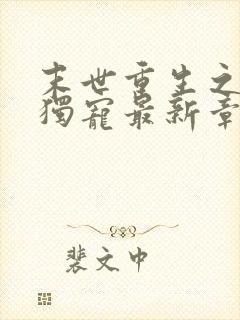 末世重生之
独寵最新章
裴文中